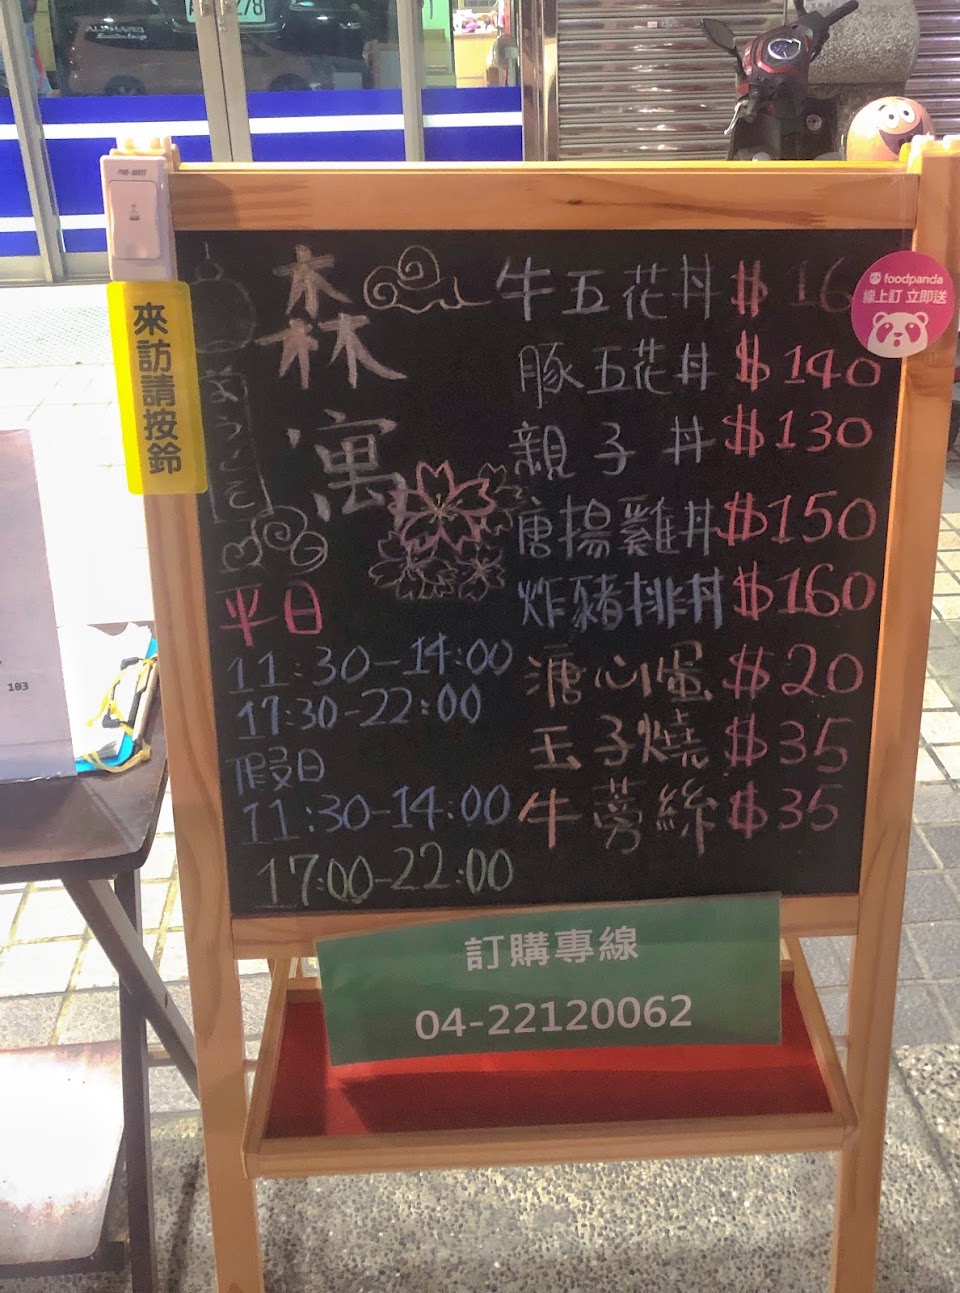 森寓
ようこそ
平日
11:30-14:00
17:30-22:00
假日
11:30-14:00
17:00-22:00
牛五花丼 $16
豚五花丼 $140
親子丼 $130
唐揚雞丼 $150
炸豬排丼 $160
溏心蛋 $20
玉子燒 $35
牛蒡絲 $35
foodpanda
線上訂 立即送
來訪請按鈴
訂購專線
04-22120062
103